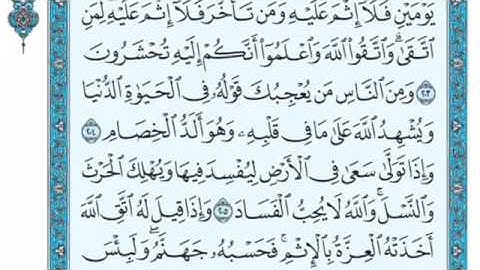 يَوْمَيْنِ فَلَآ إِثْمَ عَلَيْهِ وَمَن تَأَخَّرَ فَلَآ إِثْمَ عَلَيْهِ لِمَنِ
ٱتَّقَىٰۗ وَٱتَّقُوا۟ ٱللَّهَ وَٱعْلَمُوٓا۟ أَنَّكُمْ إِلَيْهِ تُحْشَرُونَ
٢٠٣ وَمِنَ ٱلنَّاسِ مَن يُعْجِبُكَ قَوْلُهُۥ فِى ٱلْحَيَوٰةِ ٱلدُّنْيَا
وَيُشْهِدُ ٱللَّهَ عَلَىٰ مَا فِى قَلْبِهِۦ وَهُوَ أَلَدُّ ٱلْخِصَامِ ٢٠٤
وَإِذَا تَوَلَّىٰ سَعَىٰ فِى ٱلْأَرْضِ لِيُفْسِدَ فِيهَا وَيُهْلِكَ ٱلْحَرْثَ
وَٱلنَّسْلَۗ وَٱللَّهُ لَا يُحِبُّ ٱلْفَسَادَ ٢٠٥ وَإِذَا قِيلَ لَهُ ٱتَّقِ ٱللَّهَ
أَخَذَتْهُ ٱلْعِزَّةُ بِٱلْإِثْمِۚ فَحَسْبُهُۥ جَهَنَّمُۚ وَلَبِئْسَ